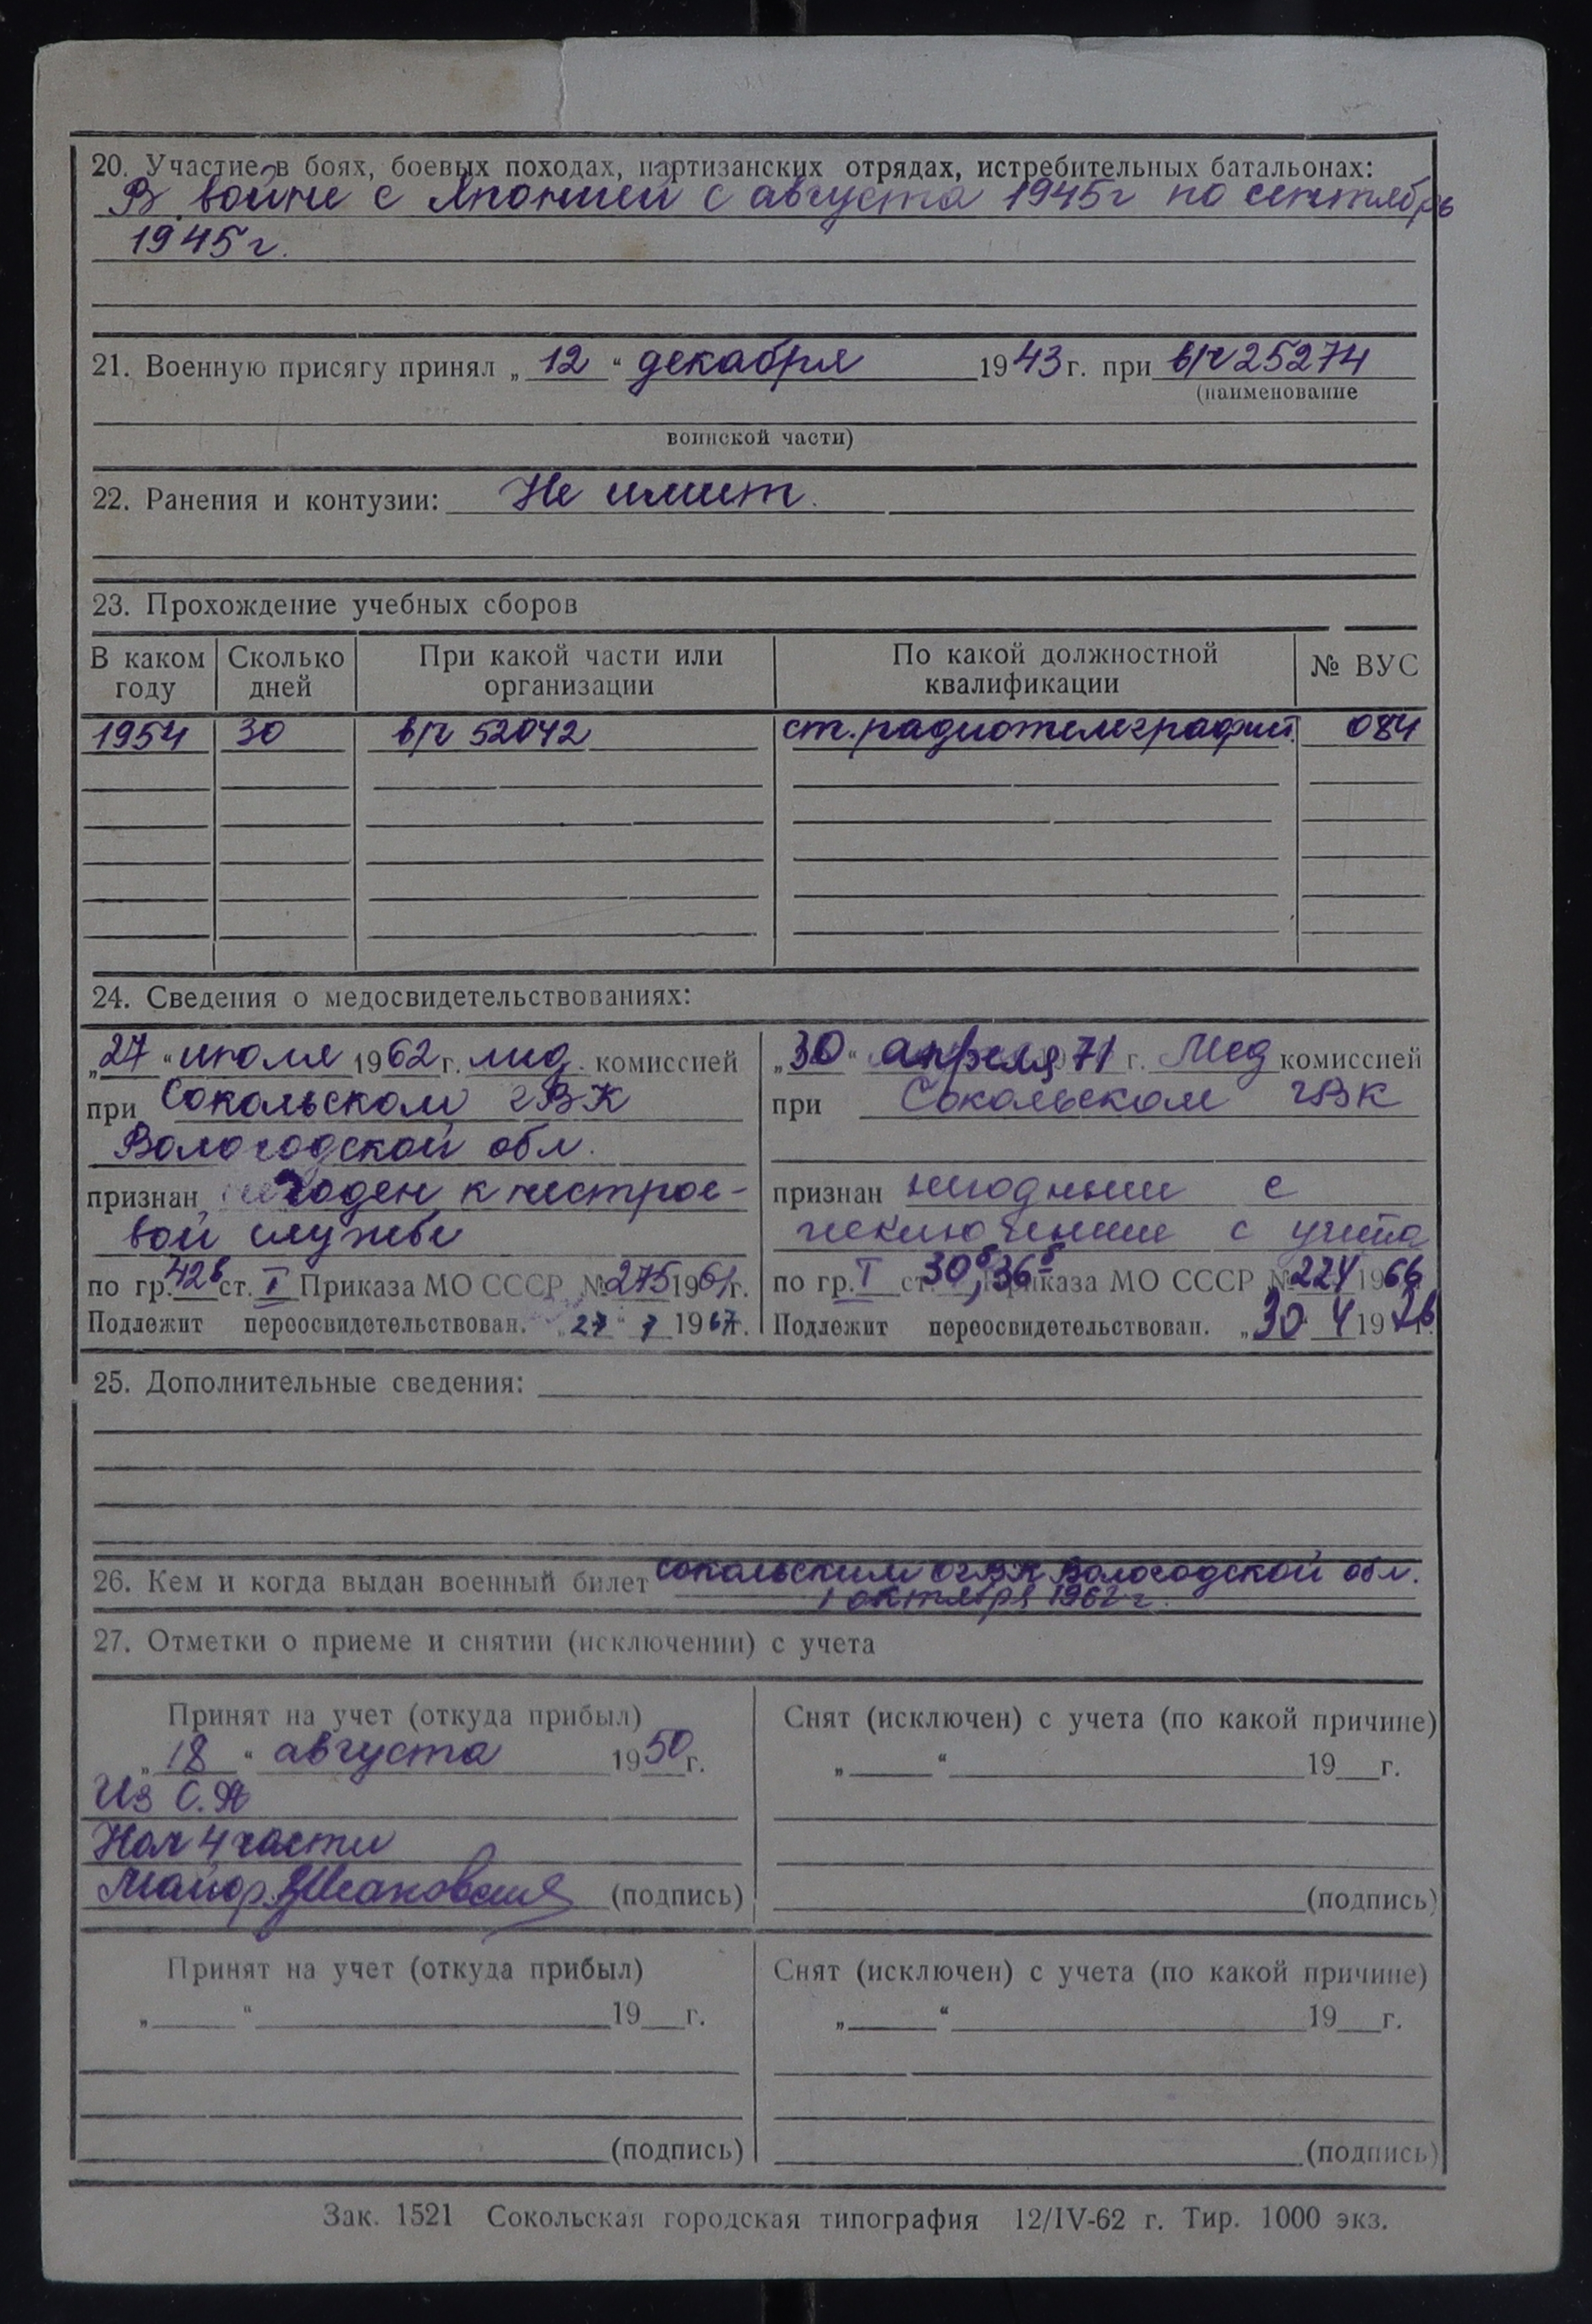 20. Участие в боях, боевых походах, партизанских отрядах, истребительных батальонах:
В войне с Японией с августа 1945г по сентябрь
1945г.
21. Военную присягу принял „12“ декабря 1943г. при в/ч 25274
(наименование
воинской части)
22. Ранения и контузии: Не имеет.
23. Прохождение учебных сборов
В каком году Сколько дней При какой части или организации По какой должностной квалификации № ВУС
1954 30 в/ч 52042 ст. радиотелеграфист. 084
24. Сведения о медосвидетельствованиях:
„27“ июля 1962г. мед. комиссией
при Сокольском гВК
Вологодской обл.
признан годен к нестрое-
вой службе
по гр. 42б ст. I Приказа МО СССР № 275 1961г.
Подлежит переосвидетельствован. „27“ 7 1967г.
„30“ апреля 71 г. Мед комиссией
при Сокольском гВК
признан негодным с
исключением с учета
по гр. I ст. 30б, 36б Приказа МО СССР № 224 1966
Подлежит переосвидетельствован. „30 4 1976 г.
25. Дополнительные сведения:
26. Кем и когда выдан военный билет Сокольским ОГВК Вологодской обл.
1 октября 1962г.
27. Отметки о приеме и снятии (исключении) с учета
Принят на учет (откуда прибыл)
„18“ августа 1950г.
Из С.А
Нач 4 части
Майор (подпись)
Снят (исключен) с учета (по какой причине)
„ “ 19 г.
(подпись)
Принят на учет (откуда прибыл)
„ “ 19 г.
(подпись)
Снят (исключен) с учета (по какой причине)
„ “ 19 г.
(подпись)
Зак. 1521 Сокольская городская типография 12/IV-62 г. Тир. 1000 экз.